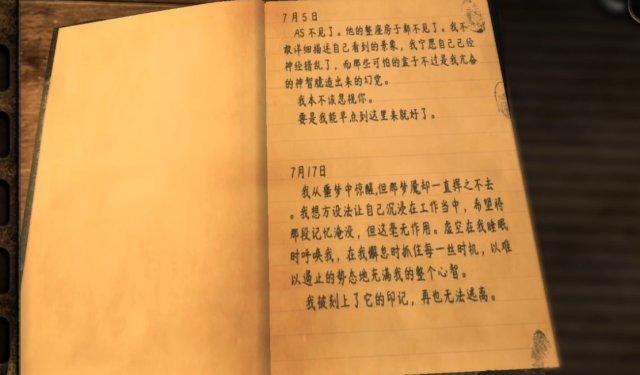 7月5日
AS不见了。他的整座房子都不见了。我不
敢详细描述自己看到的景象，我宁愿自己已经
神经错乱了，而那些可怕的盒子不过是我亢奋
的神智臆造出来的幻觉。
我本不该忽视你。
要是我能早点到这里来就好了。
7月17日
我从噩梦中惊醒,但那梦魇却一直挥之不去
。我想方设法让自己沉浸在工作当中，希望将
那段记忆淹没，但这毫无作用。虚空在我睡眠
时呼唤我，在我懈怠时抓住每一丝时机，以难
以遏止的势态地充满我的整个心智。
我被刻上了它的印记，再也无法逃离。